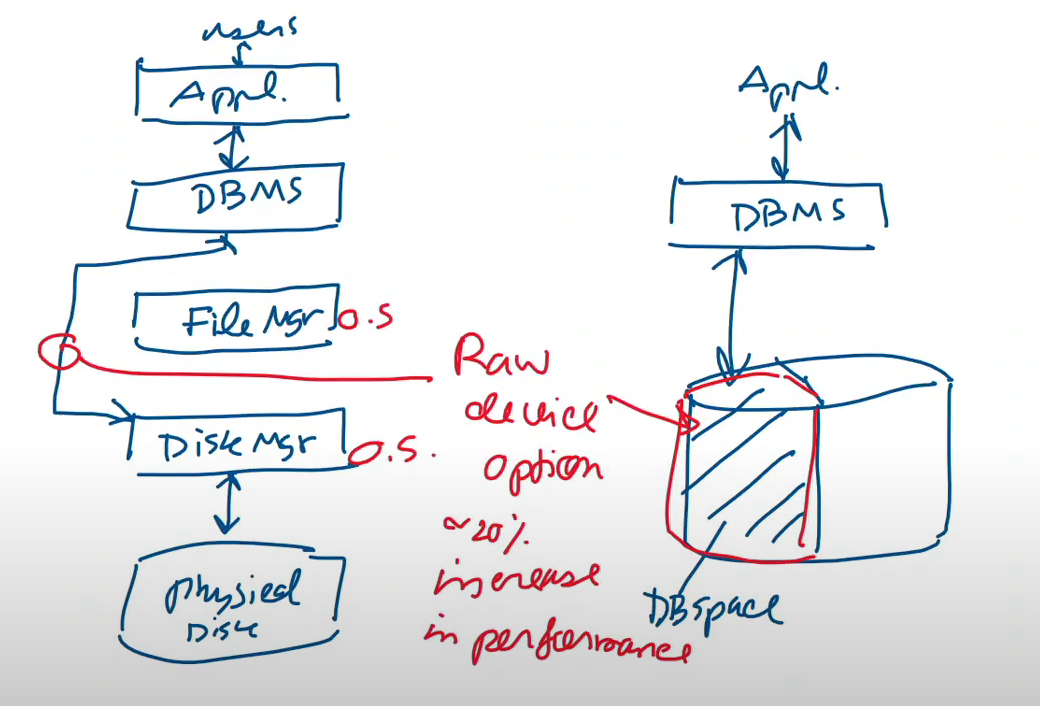 users
Appl.
DBMS
File Mgr
O.S
Disk Mgr
O.S.
Physical
Disk
Raw
device
option
~20%
increase
in performance
Appl.
DBMS
DBspace